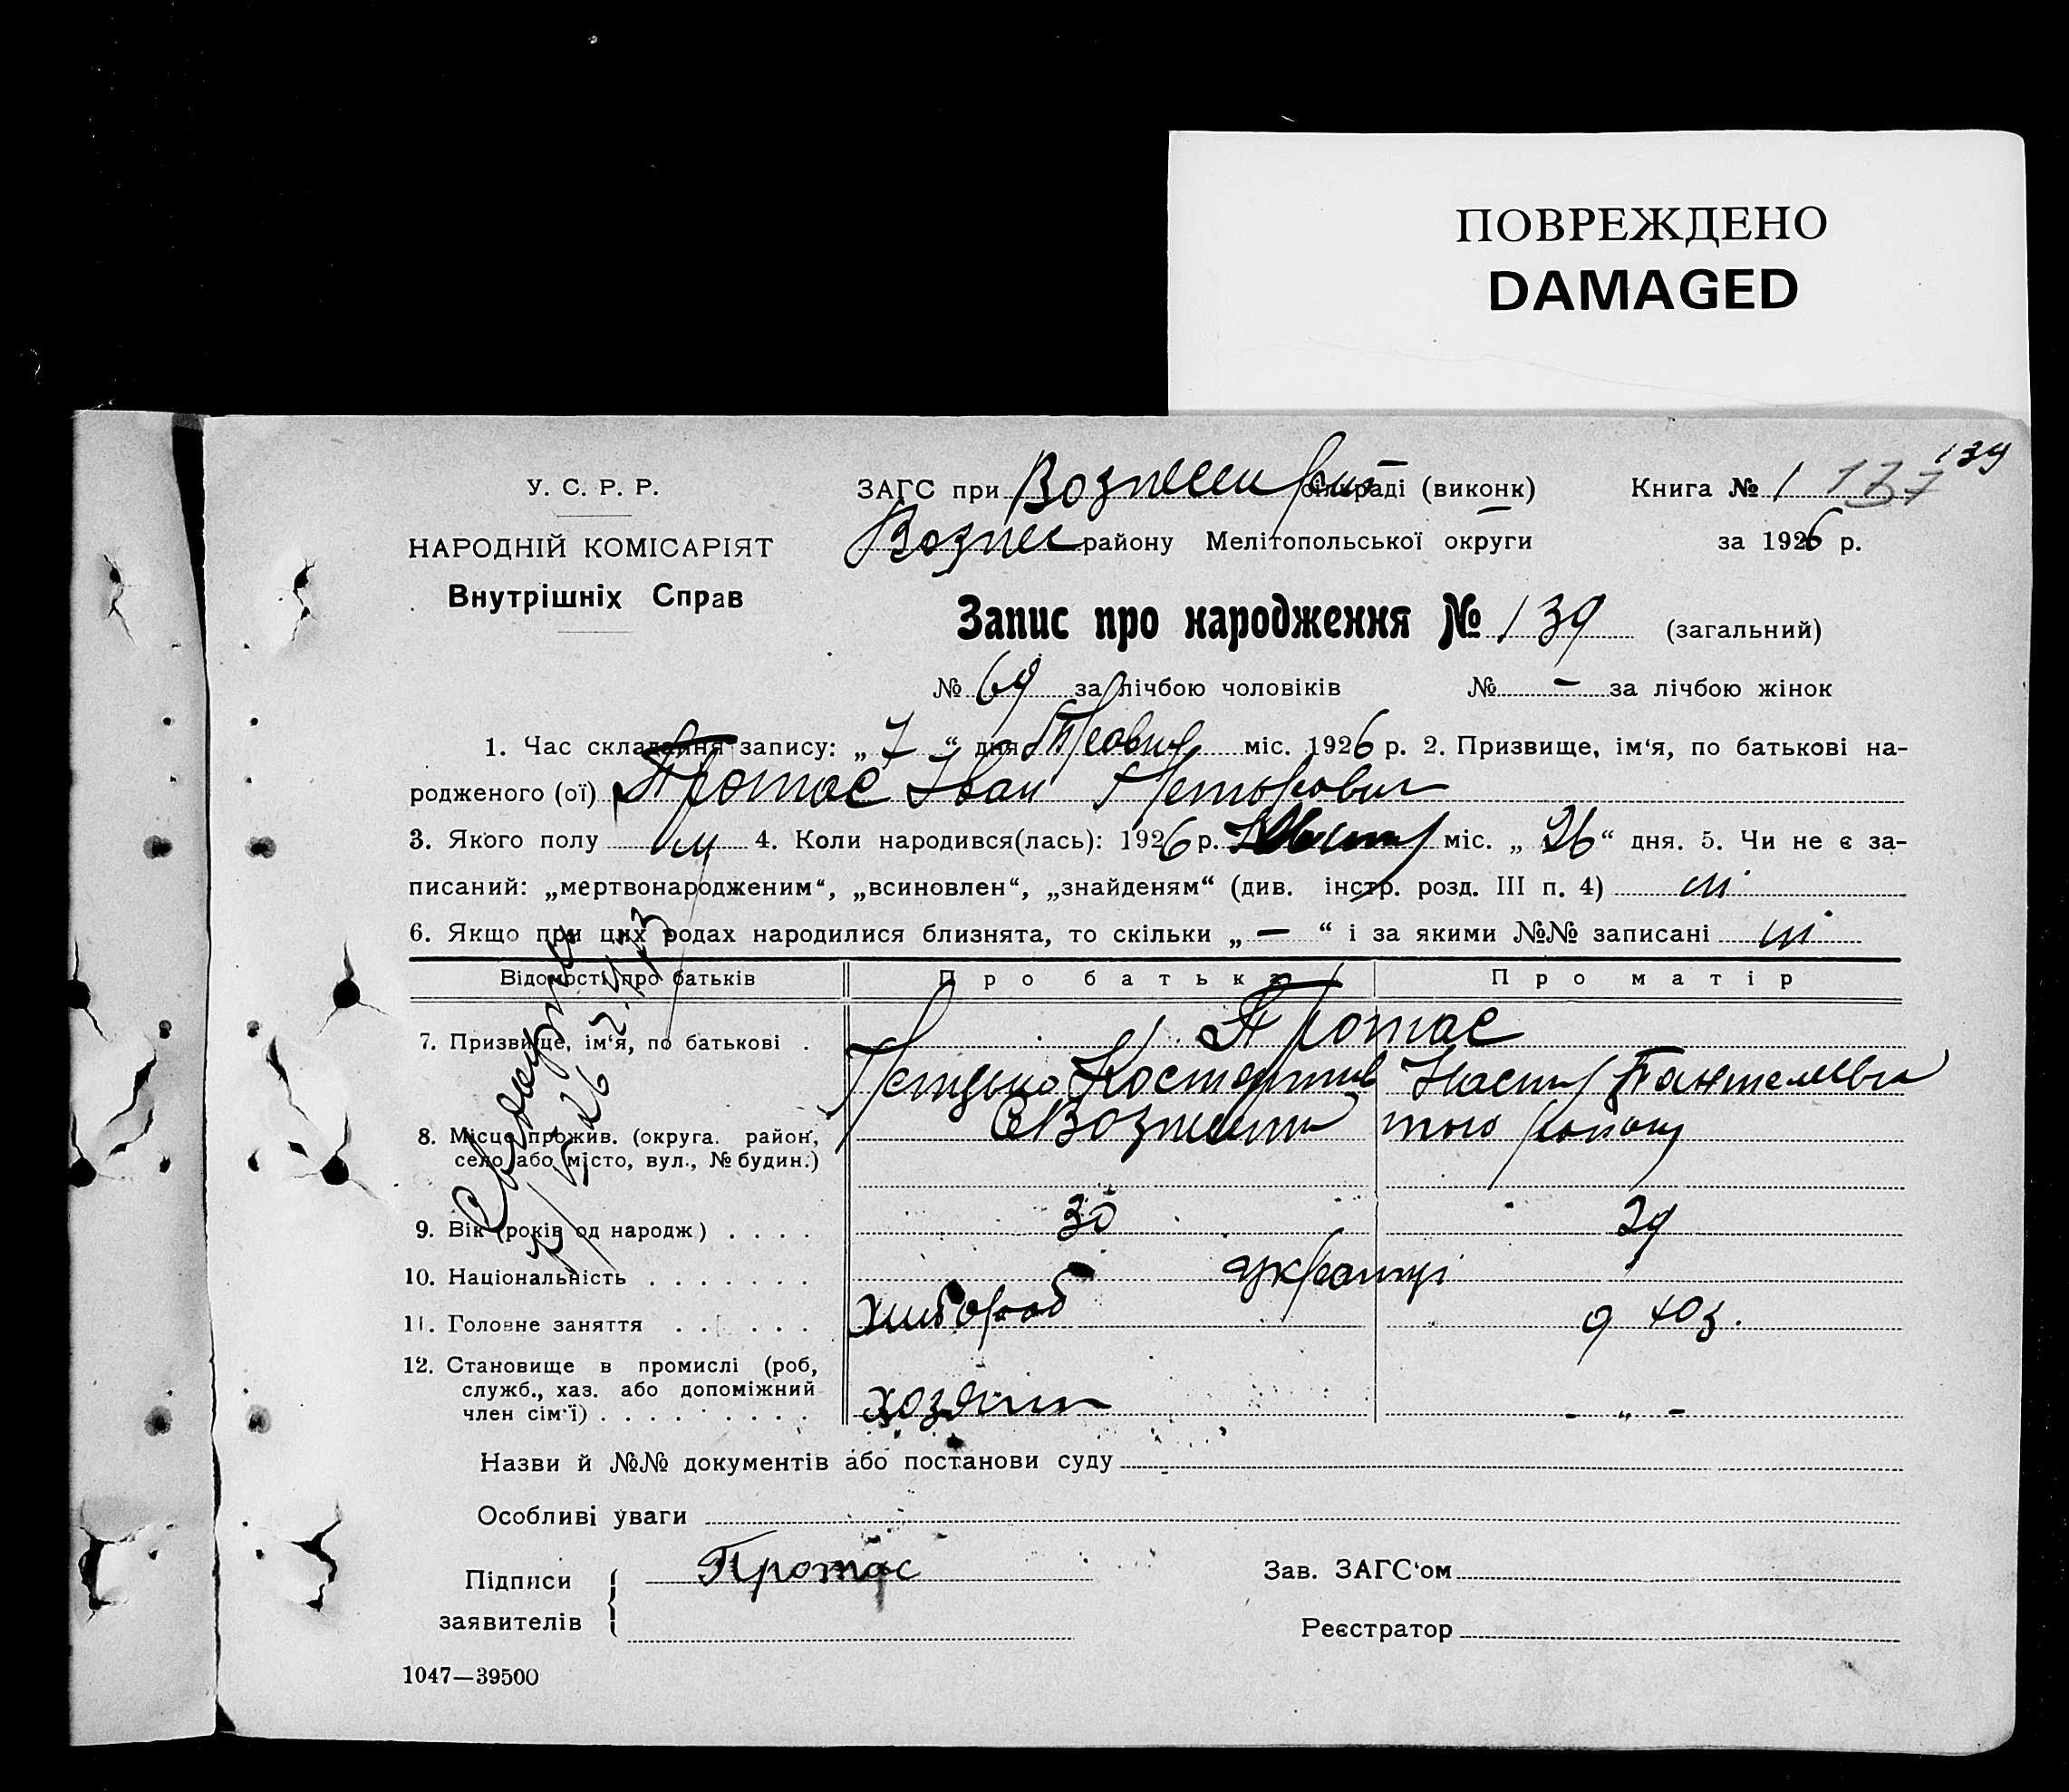 ПОВРЕЖДЕНО
DAMAGED
139
У. С. Р. Р.
НАРОДНІЙ КОМІСАРІЯТ
Внутрішніх Справ
ЗАГС при сільраді (виконк) Книга № 1 137
Вознес району Мелітопольської округи за 1926 р.
Запис про народження № 139 (загальний)
№ 69 за лічбою чоловіків № - за лічбою жінок
1. Час складання запису: „ 7 “ дня міс. 1926 р. 2. Призвище, ім‘я, по батькові на-
родженого (ої) Протас Іван Петрович
3. Якого полу м 4. Коли народився(лась): 1926 р. міс. „ 26 “ дня. 5. Чи не є за-
писаний: „мертвонародженим“, „всиновлен“, „знайденям“ (див. інстр. розд. III п. 4) ні
6. Якщо при цих родах народилися близнята, то скільки „ — “ і за якими №№ записані ні
Відомості про батьків Про батька Про матір
7. Призвище, ім‘я, по батькові . Протас
Костянтин Настя Пантелеївна
8. Місце прожив. (округа. район, того району
село або місто, вул., № будин.)
9. Вік (років од народж) . . . . 30 29
10. Національність . . . . . . . українці
11. Головне заняття . . . . . . хлібороб д хоз.
12. Становище в промислі (роб,
служб., хаз. або допоміжний
член сім‘ї) . . . . . . . . . хозяїн - „ -
Назви й №№ документів або постанови суду
Особливі уваги
Підписи Протас Зав. ЗАГС‘ом
заявителів Реєстратор
1047—39500